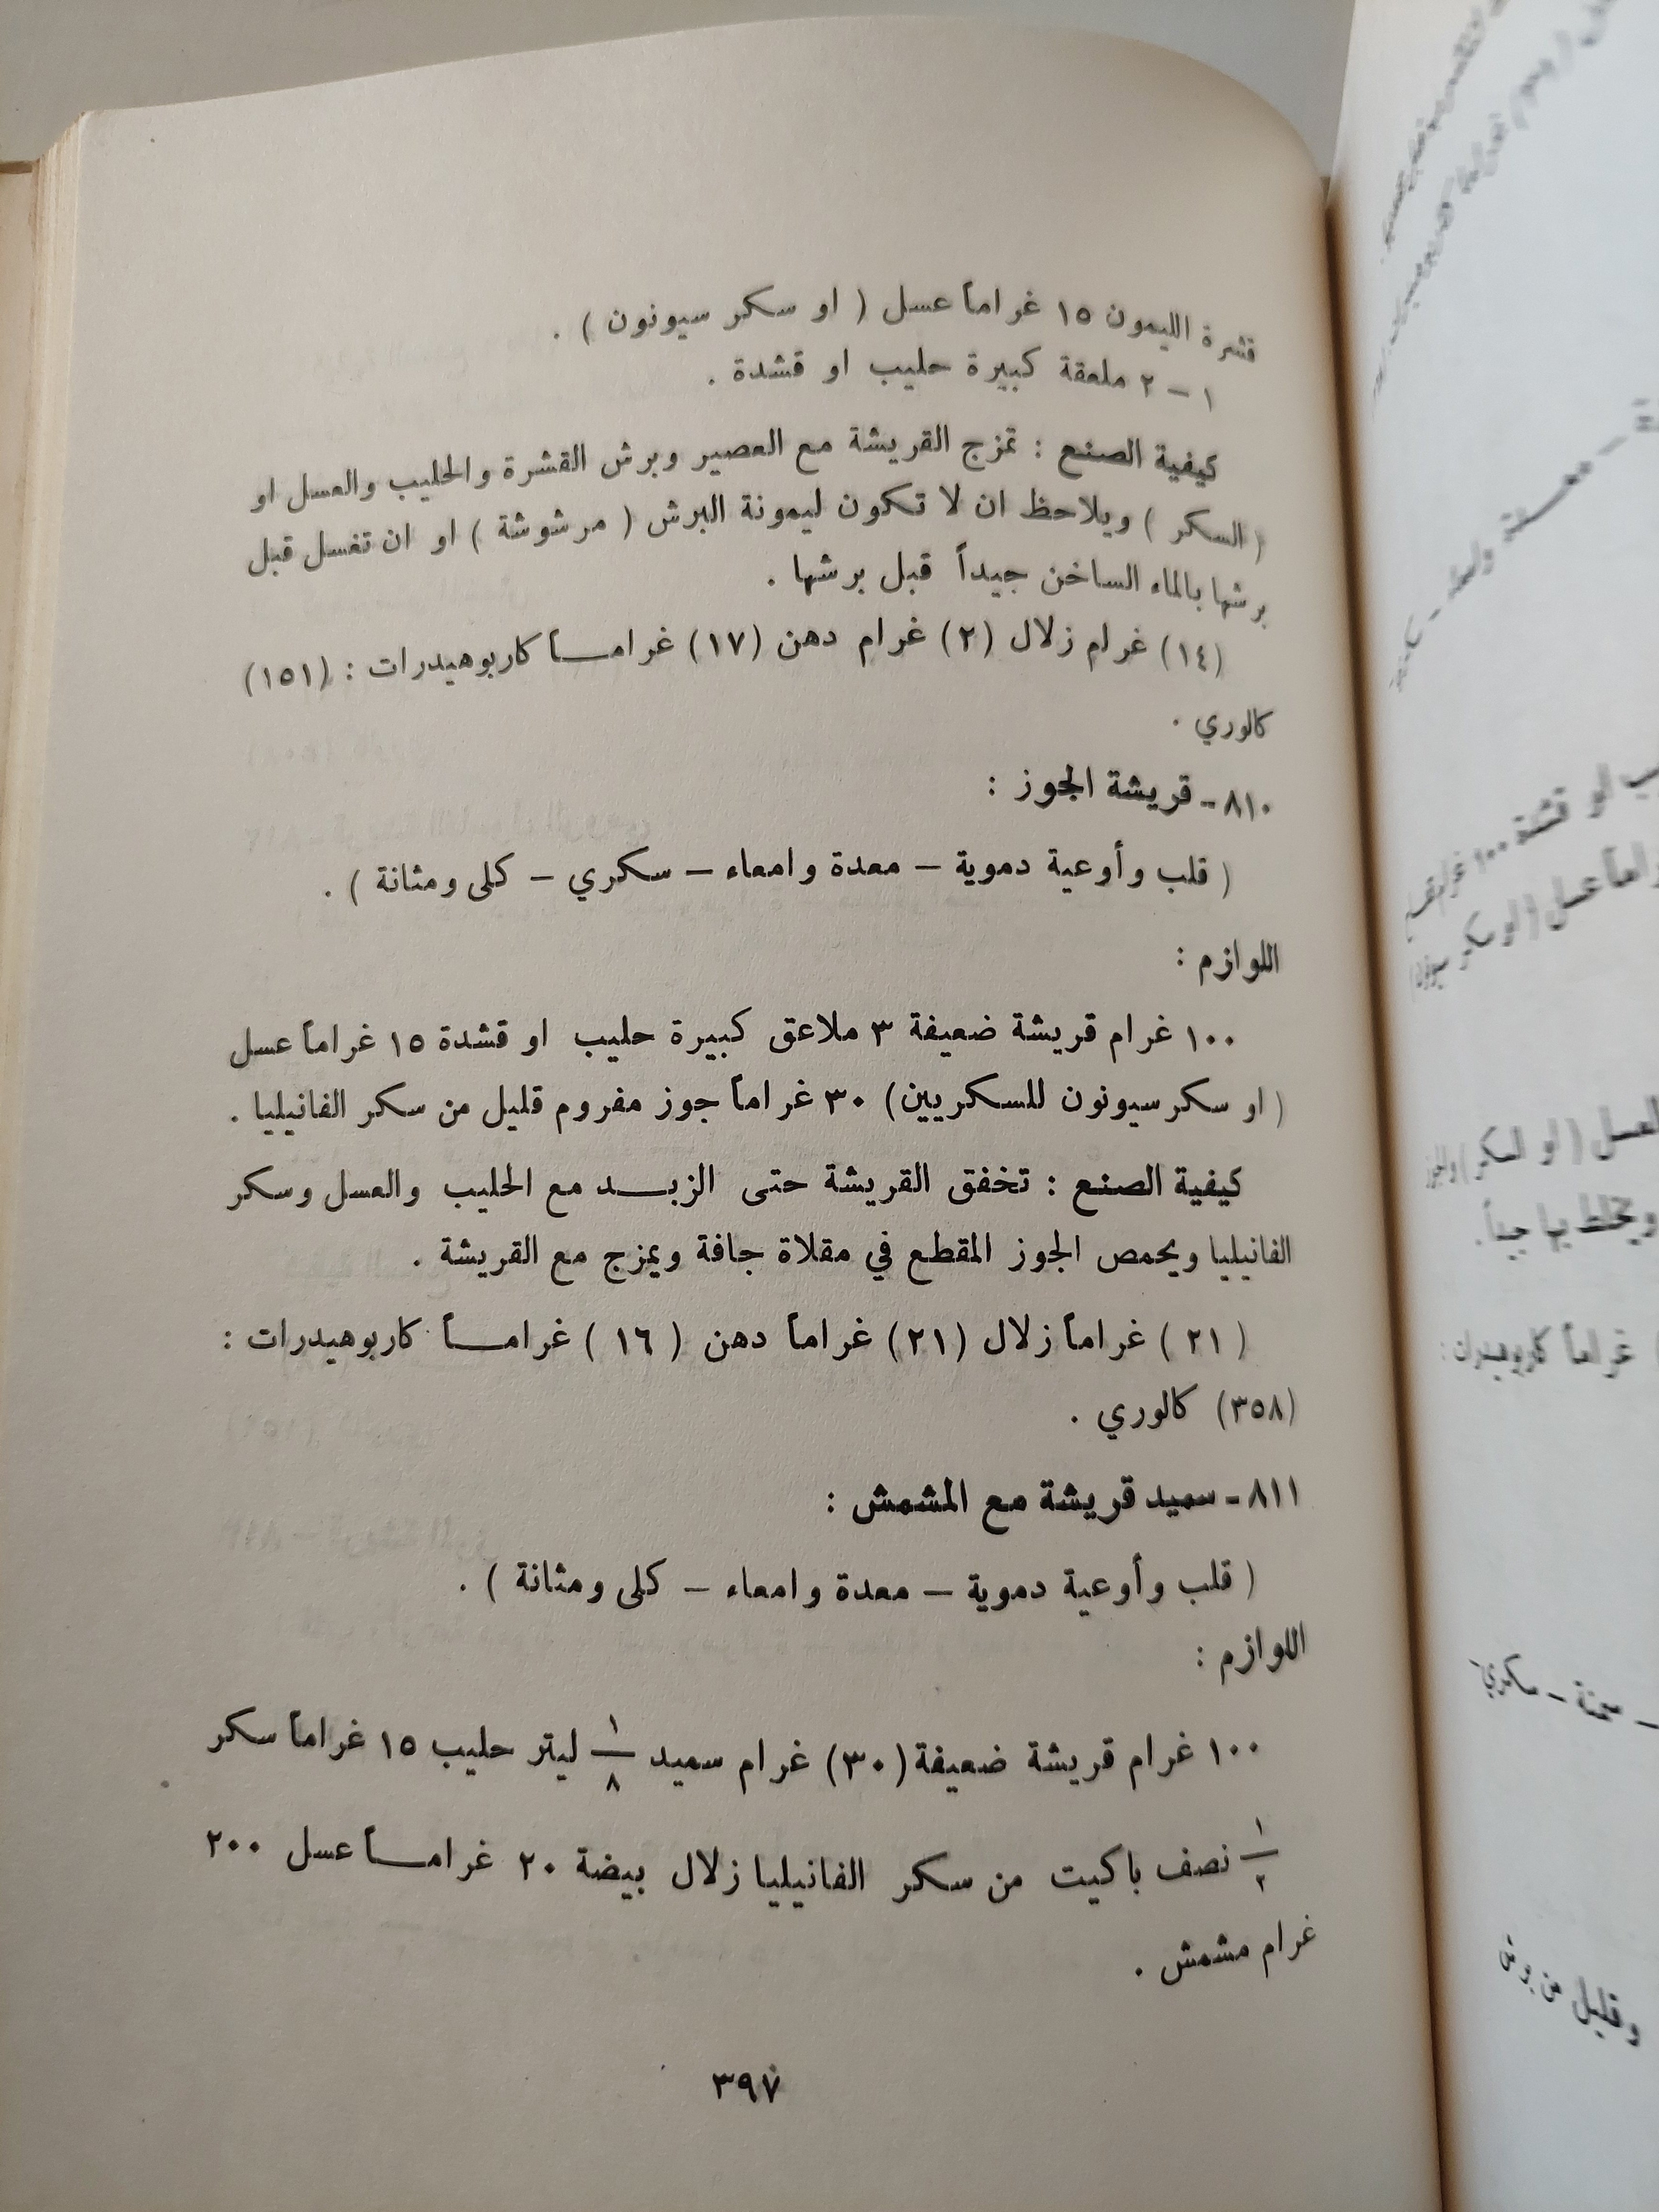 قشرة الليمون ١٥ غراماً عسل ( او سكر سيونون ) .
١ – ٢ ملعقة كبيرة حليب او قشدة .
كيفية الصنع : تمزج القريشة مع العصير وبرش القشرة والحليب والعسل او
( السكر ) ويلاحظ ان لا تكون ليمونة البرش ( مرشوشة ) او ان تغسل قبل
برشها بالماء الساخن جيداً قبل برشها .
(١٤) غرام زلال (٢) غرام دهن (١٧) غرامـــاً كاربوهيدرات : (١٥١)
كالوري .
٨١٠ - قريشة الجوز :
( قلب وأوعية دموية – معدة وامعاء – سكري – كلى ومثانة ) .
اللوازم :
١٠٠ غرام قريشة ضعيفة ٣ ملاعق كبيرة حليب او قشدة ١٥ غراماً عسل
( او سكر سيونون للسكريين) ٣٠ غراماً جوز مفروم قليل من سكر الفانيليا .
كيفية الصنع : تخفق القريشة حتى الزبـــد مع الحليب والعسل وسكر
الفانيليا ويحمص الجوز المقطع في مقلاة جافة ويمزج مع القريشة .
( ٢١ ) غراماً زلال (٢١) غراماً دهن ( ١٦ ) غرامـــاً كاربوهيدرات :
(٣٥٨) كالوري .
٨١١ - سميد قريشة مع المشمش :
( قلب وأوعية دموية – معدة وامعاء – كلى ومثانة ) .
اللوازم :
١٠٠ غرام قريشة ضعيفة (٣٠) غرام سميد ١/٨ ليتر حليب ١٥ غراماً سكر
١/٢ نصف باكيت من سكر الفانيليا زلال بيضة ٢٠ غرامـــاً عسل ٢٠٠
غرام مشمش .
٣٩٧